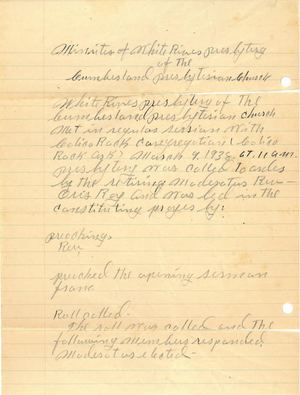 Minutes of White River presbytery
of the
Cumberland presbyterian Church
White River presbytery of the
Cumberland presbyterian Church
met in regular session with
Calico Rock congregation Calico
Rock Ark. March 9, 193 at. 11 a.m.
presbytery was called to order
by the retiring Moderator Rev-
Roy and was led in the
constituting prayer by:
preaching
Rev.
preached the opening sermon
from
Roll called-
The roll was called and the
following Members responded.
Moderator elected-